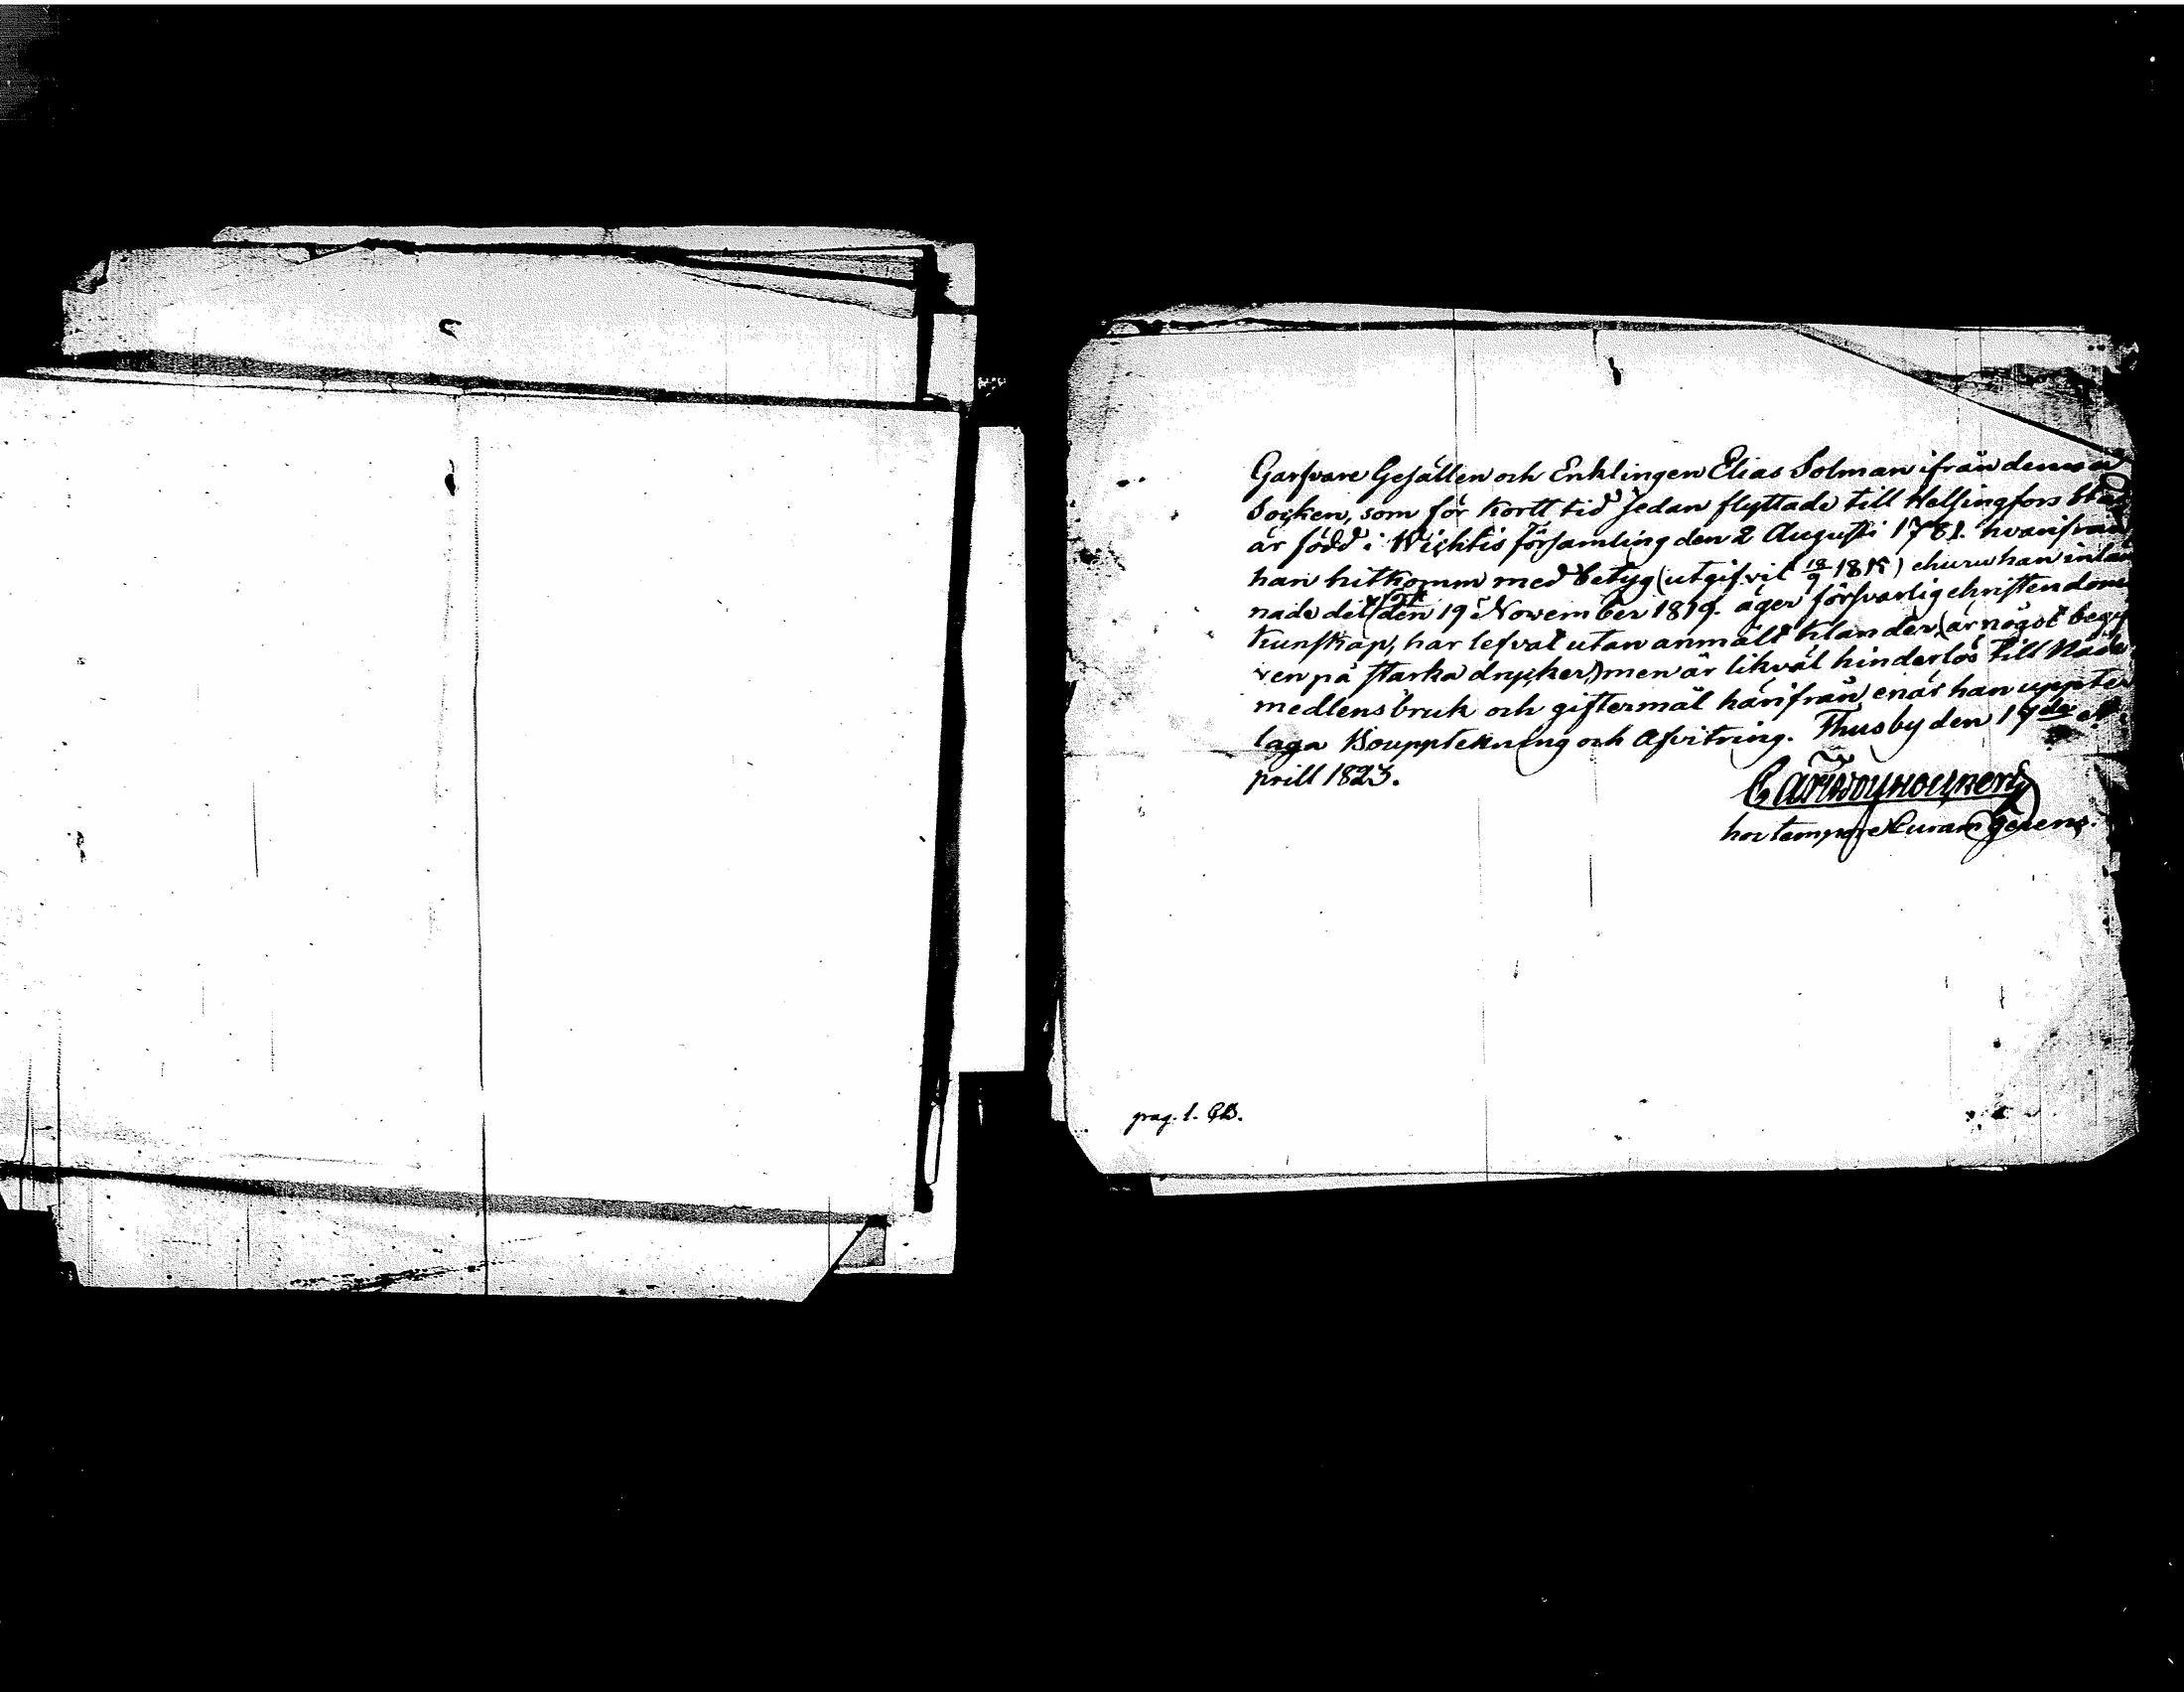 Garfvare Gesällen och Enklingen Elias Solman ifrån denna
Socken, som för kortt tid sedan flyttade till Helsingfors Stad
är född i Wichtis församling den 2 Augusti 1781. hvarifrån
han hitkomm med betyg (utgifvit ehuru han inläm
nade det den 19 November 1819. äger försvarlig christendoms
kunskap, har lefvat utan anmält klander, (är något begif
ven på starka drycker,) men är likväl hinderlös till Nade
medlens bruk och giftermål härifrån, enär han uppter
laga Bouppteckning och Afvitring. Thusby den 17de A
prill 1823.
hoc tempore Curam gerens.
pag. 1.